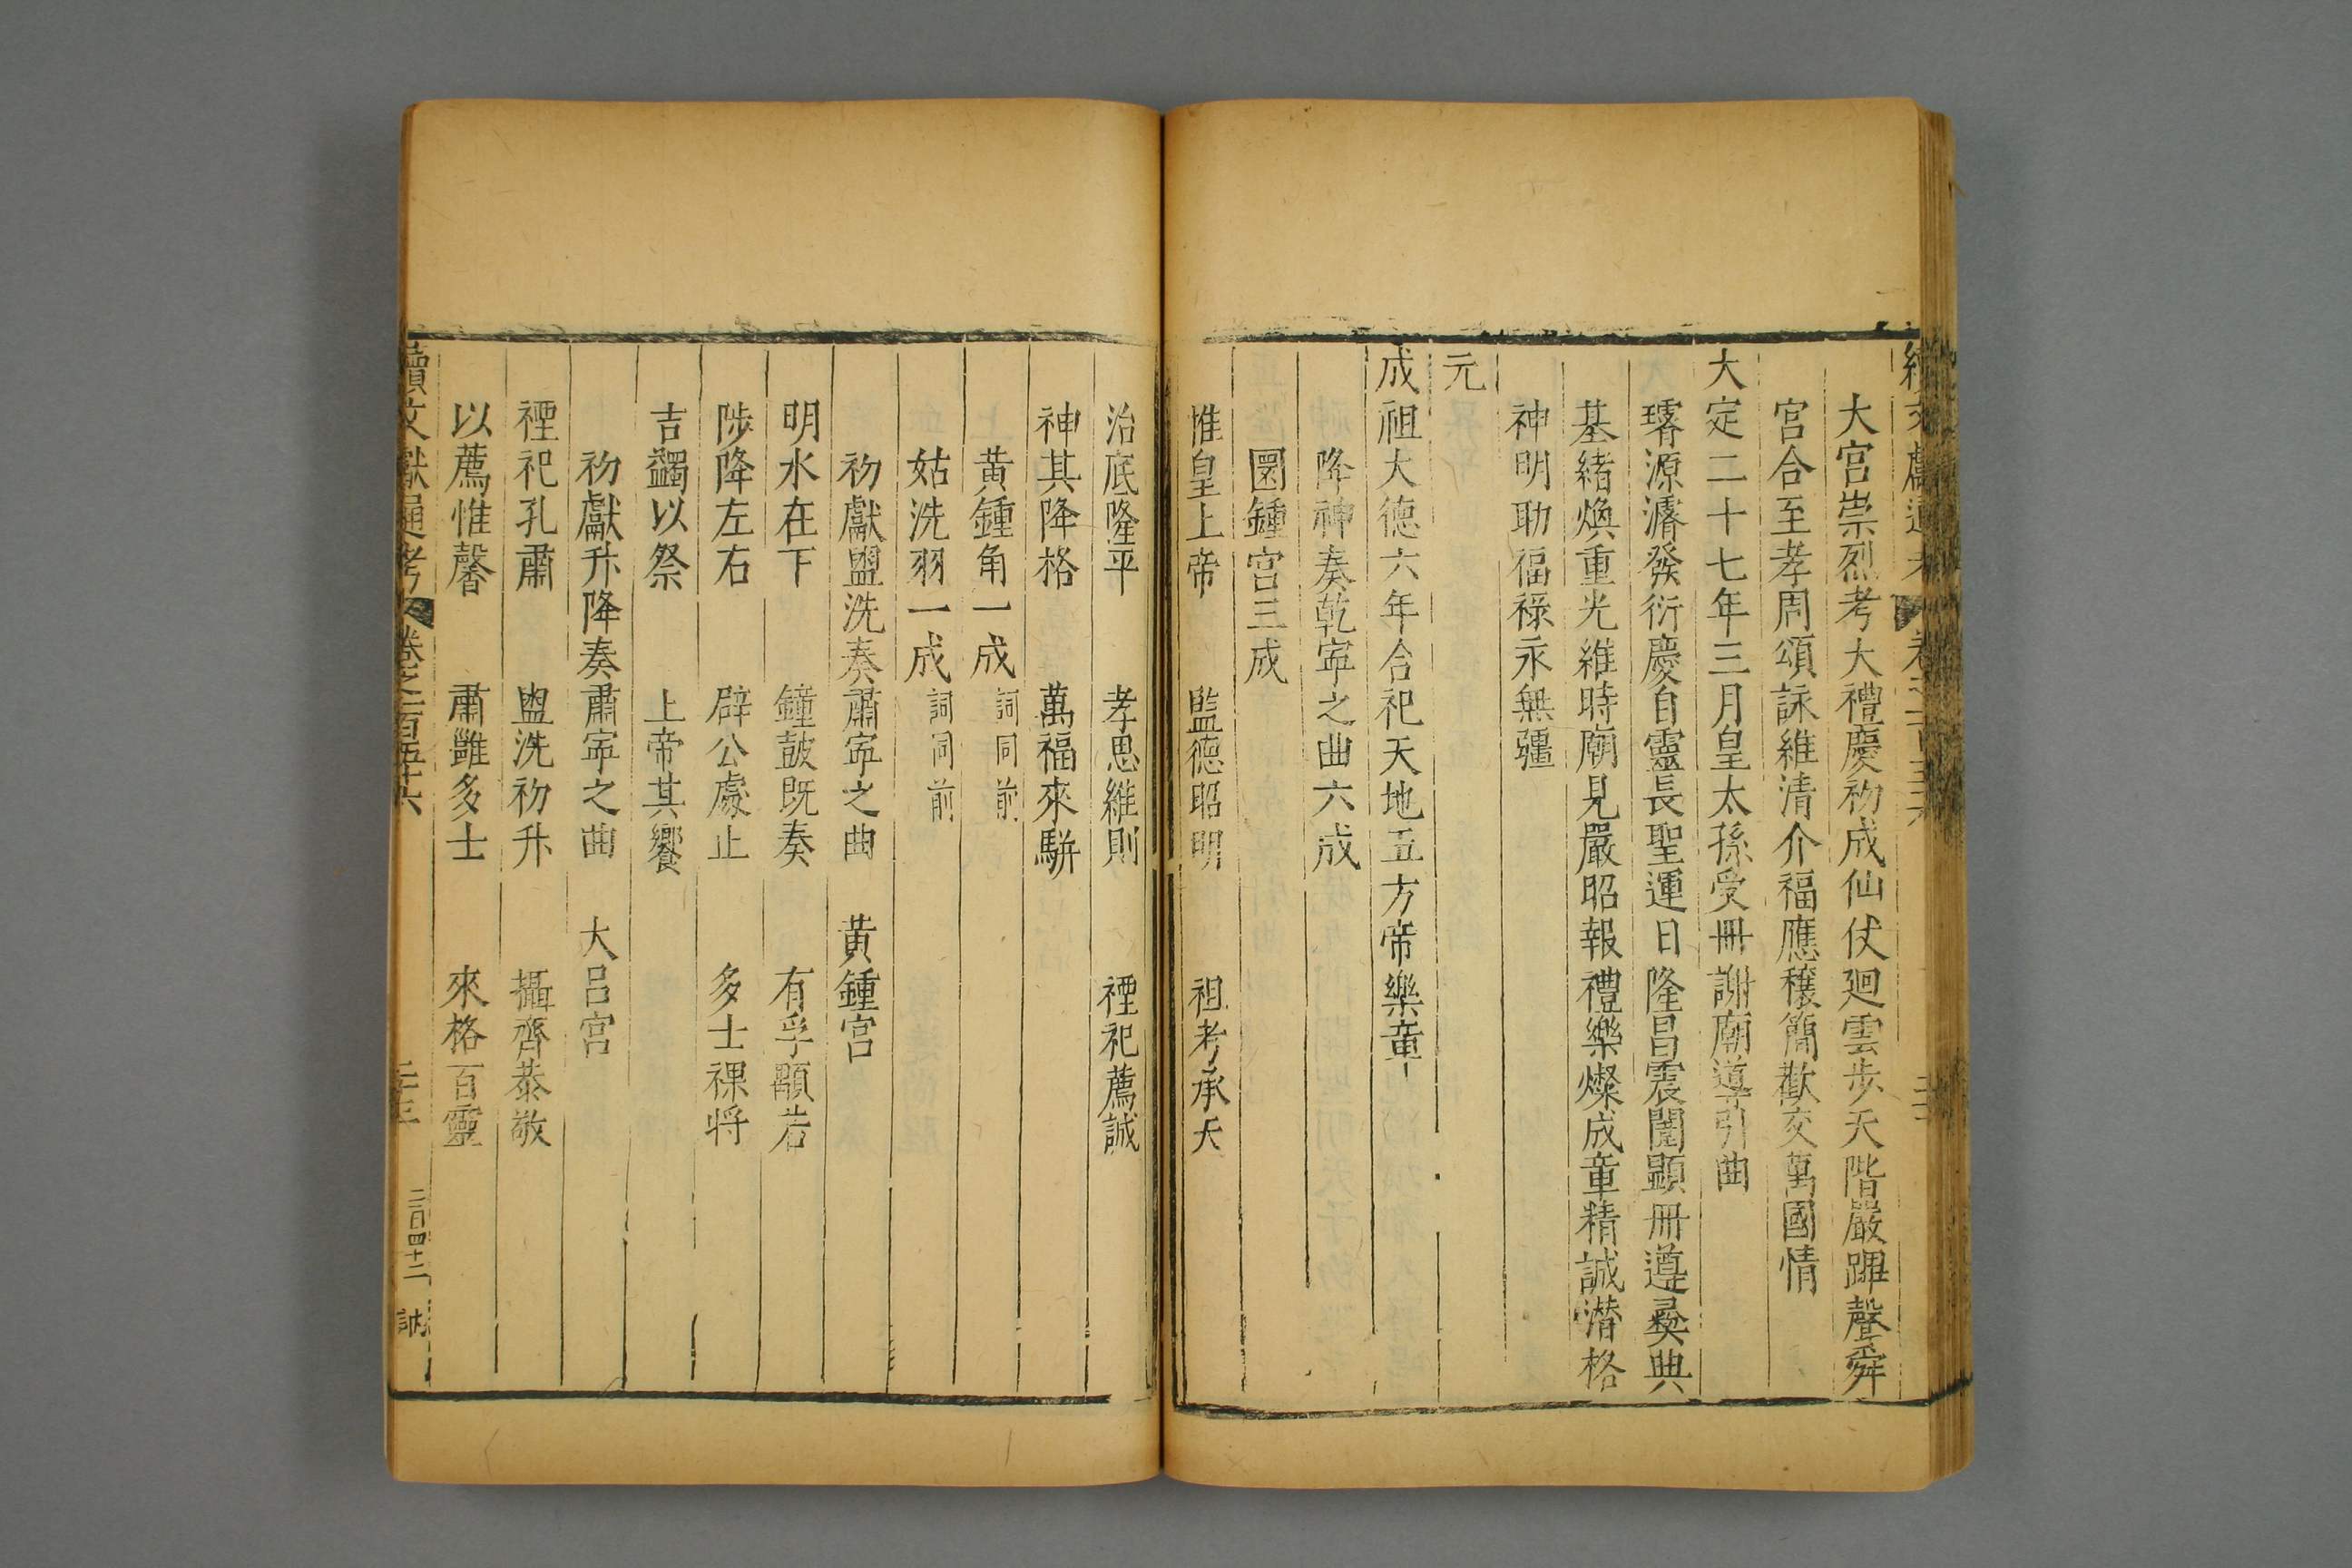 大宮崇烈考大禮慶初成仙仗廻雲歩天階嚴蹕聲舜
宮合至孝周頌詠維清介福應穰簡歡交萬國情
大定二十七年三月皇太孫受冊謝廟導引曲
璿源濬發衍慶自靈長聖運日隆昌震闈顯冊遵彜典
基緒煥重光維時廟見嚴昭報禮樂燦成章精誠潜格
神明助福祿永無疆
元
成祖大德六年合祀天地五方帝樂章
降神奏乾寜之曲六成
圜鍾宮三成
惟皇上帝 監德昭明 祖考承天
治底隆平 孝思維則 禋祀薦誠
神其降格 萬福來駢
黄鍾角一成 詞同前
姑洗羽一成 詞同前
初獻盥洗奏肅寜之曲 黄鍾宮
明水在下 鐘鼓既奏 有孚顒若
陟降左右 辟公處止 多士祼将
吉蠲以祭 上帝其饗
初獻升降奏肅寜之曲 大吕宮
禋祀孔肅 盥洗初升 攝齊恭敬
以薦惟馨 肅雝多士 來格百靈
續文獻通考 卷之一百五十六 二十三